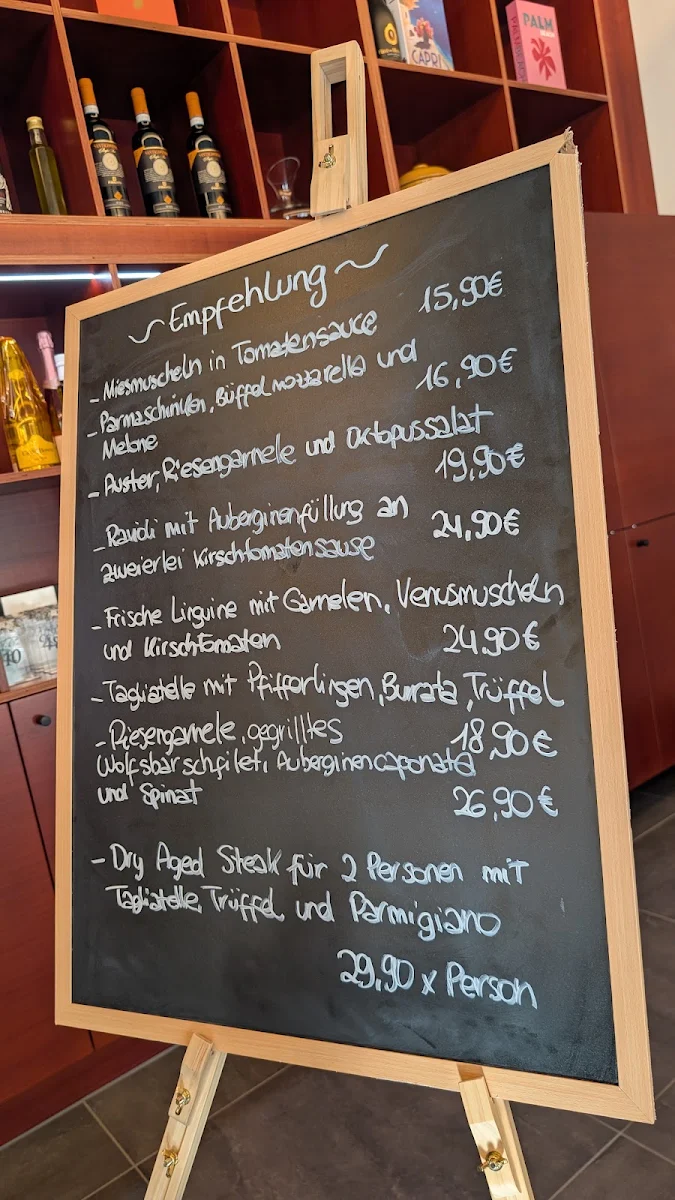 PALM
CAPRI
~ Empfehlung ~
- Miesmuscheln in Tomatensauce 15,90€
- Parmaschinken, Büffelmozzarella und
Melone 16,90€
- Auster, Riesengarnele und Oktopussalat
19,90€
- Ravioli mit Auberginenfüllung an
zweierlei Kirschtomatensause 24,90€
- Frische Linguine mit Garnelen, Venusmuscheln
und Kirschtomaten 24,90€
- Tagliatelle mit Pfifferlingen, Burrata, Trüffel
18,90€
- Riesengarnele, gegrilltes
Wolfsbarschfilet, Auberginencaponata
und Spinat 26,90€
- Dry Aged Steak für 2 Personen mit
Tagliatelle, Trüffel und Parmigiano
29,90 x Person